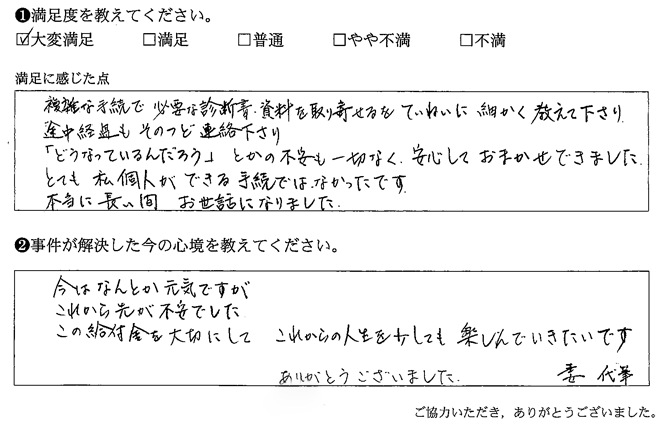 ❶満足度を教えてください。
☑大変満足 □満足 □普通 □やや不満 □不満
満足に感じた点
複雑な手続で 必要な診断書・資料を取り寄せるを ていねいに 細かく 教えて下さり
途中経過も そのつど 連絡下さり
「どうなっているんだろう」 とかの不安も一切なく、安心して おまかせできました。
とても 私個人が できる 手続では なかったです
本当に 長い間 お世話になりました。
❷事件が解決した今の心境を教えてください。
今は なんとか 元気ですが
これから先が 不安でした
この給付金を大切にして これからの人生を少しでも 楽しんでいきたいです
ありがとうございました。 妻 代筆
ご協力いただき，ありがとうございました。